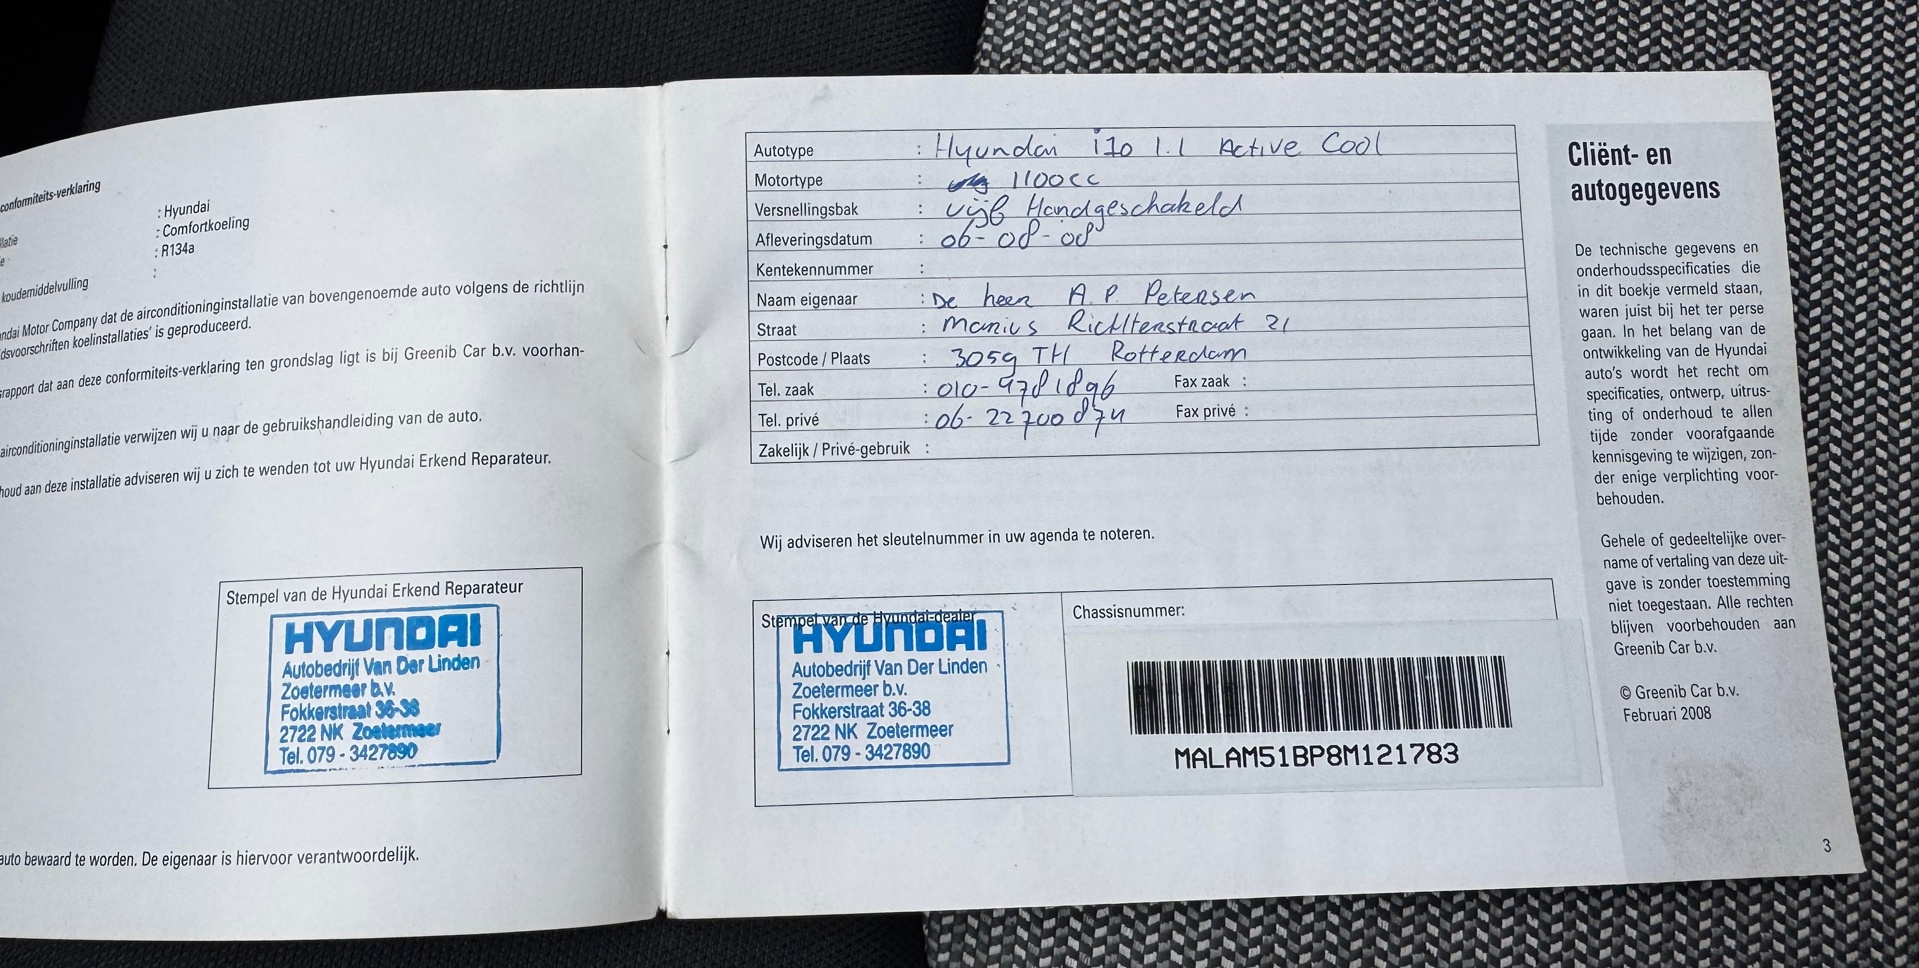 conformiteits-verklaring
: Hyundai
: Comfortkoeling
: R134a
:
koudemiddelvulling
ndai Motor Company dat de airconditioninginstallatie van bovengenoemde auto volgens de richtlijn
dsvoorschriften koelinstallaties' is geproduceerd.
rapport dat aan deze conformiteits-verklaring ten grondslag ligt is bij Greenib Car b.v. voorhan-
airconditioninginstallatie verwijzen wij u naar de gebruikshandleiding van de auto.
houd aan deze installatie adviseren wij u zich te wenden tot uw Hyundai Erkend Reparateur.
Stempel van de Hyundai Erkend Reparateur
HYUNDAI
Autobedrijf Van Der Linden
Zoetermeer b.v.
Fokkerstraat 36-38
2722 NK Zoetermeer
Tel. 079 - 3427890
auto bewaard te worden. De eigenaar is hiervoor verantwoordelijk.
Autotype : Hyundai i10 1.1 Active Cool
Motortype : 1100cc
Versnellingsbak : vijf Handgeschakeld
Afleveringsdatum : 06-08-08
Kentekennummer :
Naam eigenaar : De heer A.P. Petersen
Straat : Marius Richterstraat 21
Postcode / Plaats : 3059 TH Rotterdam
Tel. zaak : 010-4781896 Fax zaak :
Tel. privé : 06-22700874 Fax privé :
Zakelijk / Privé-gebruik :
Wij adviseren het sleutelnummer in uw agenda te noteren.
Stempel van de Hyundai-dealer
HYUNDAI
Autobedrijf Van Der Linden
Zoetermeer b.v.
Fokkerstraat 36-38
2722 NK Zoetermeer
Tel. 079 - 3427890
Chassisnummer:
MALAM51BP8M121783
Cliënt- en
autogegevens
De technische gegevens en
onderhoudsspecificaties die
in dit boekje vermeld staan,
waren juist bij het ter perse
gaan. In het belang van de
ontwikkeling van de Hyundai
auto's wordt het recht om
specificaties, ontwerp, uitrus-
ting of onderhoud te allen
tijde zonder voorafgaande
kennisgeving te wijzigen, zon-
der enige verplichting voor-
behouden.
Gehele of gedeeltelijke over-
name of vertaling van deze uit-
gave is zonder toestemming
niet toegestaan. Alle rechten
blijven voorbehouden aan
Greenib Car b.v.
© Greenib Car b.v.
Februari 2008
3